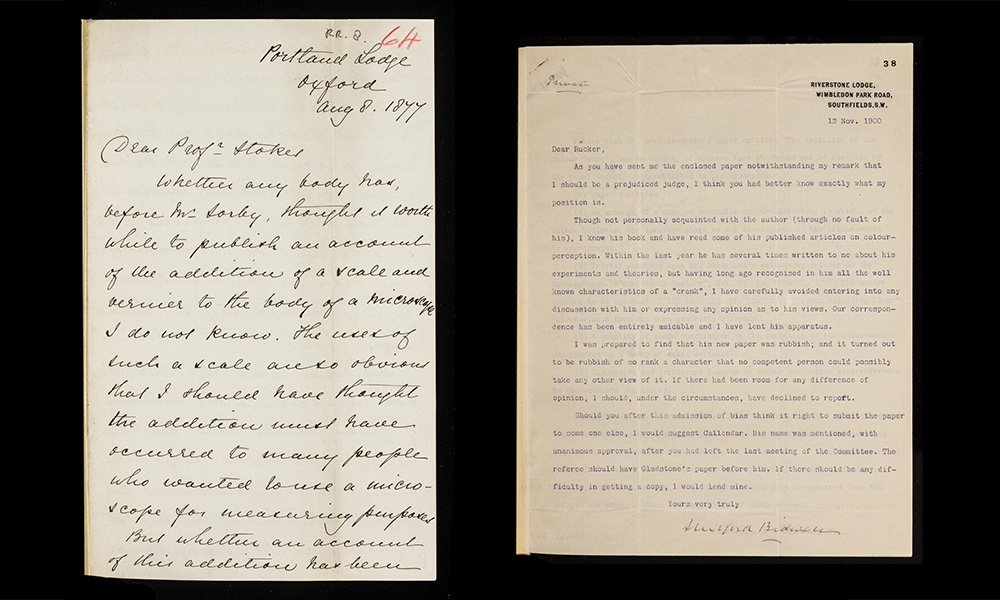 RR. 8. 64
Portland Lodge
Oxford
Aug 8. 1877
Dear Profr. Stokes
Whether any body has,
before Mr Sorby, thought it worth
while to publish an account
of the addition of a scale and
vernier to the body of a microscope
I do not know. The uses of
such a scale are so obvious
that I should have thought
the addition must have
occurred to many people
who wanted to use a micro-
scope for measuring purposes
But whether an account
of this addition has been
38
Private
RIVERSTONE LODGE,
WIMBLEDON PARK ROAD,
SOUTHFIELDS, S.W.
12 Nov. 1900
Dear Rucker,
As you have sent me the enclosed paper notwithstanding my remark that
I should be a prejudiced judge, I think you had better know exactly what my
position is.
Though not personally acquainted with the author (through no fault of
his), I know his book and have read some of his published articles on colour-
perception. Within the last year he has several times written to me about his
experiments and theories, but having long ago recognised in him all the well
known characteristics of a "crank", I have carefully avoided entering into any
discussion with him or expressing any opinion as to his views. Our correspon-
dence has been entirely amicable and I have lent him apparatus.
I was prepared to find that his new paper was rubbish; and it turned out
to be rubbish of so rank a character that no competent person could possibly
take any other view of it. If there had been room for any difference of
opinion, I should, under the circumstances, have declined to report.
Should you after this admission of bias think it right to submit the paper
to some one else, I would suggest Callendar. His name was mentioned, with
unanimous approval, after you had left the last meeting of the Committee. The
referee should have Gladstone's paper before him. If there should be any dif-
ficulty in getting a copy, I would lend mine.
Yours very truly
Shelford Bidwell